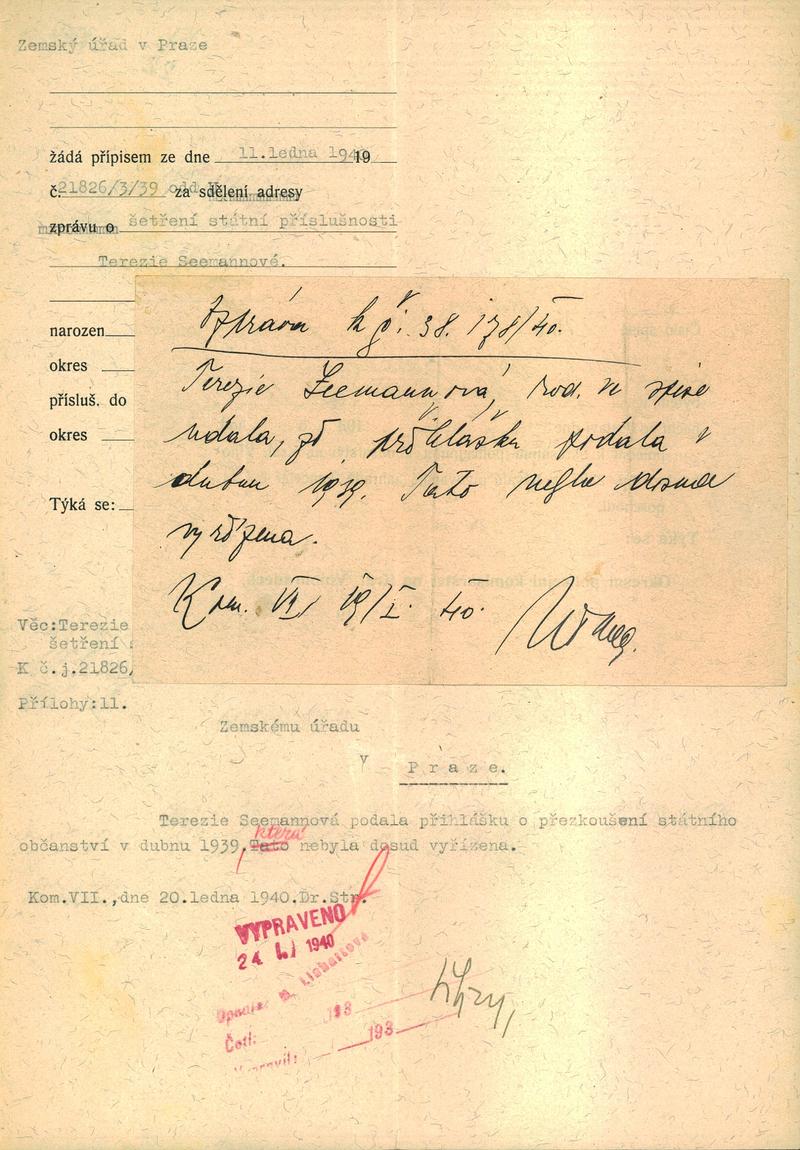 Zemský úřad v Praze
žádá přípisem ze dne 11.ledna 1940 19
č. 21826/3/39 odd. za sdělení adresy
zprávu o šetření státní příslušnosti
Terezie Seemannové.
narozen
okres
přísluš. do
okres
Týká se:
Zpráva k č: 38.178/40.
Terezie Seemannová, rod. ve spise
udala, že přihlášku podala v
dubnu 1939. Tato nebla dosud
vyřízena.
Kom. VII 19/I. 40.
Věc:Terezie
šetření
K č.j.21826/
Přílohy:11.
Zemskému úřadu
v
Praze.
Terezie Seemannová podala přihlášku o přezkoušení státního
která
občanství v dubnu 1939.Tato nebyla dosud vyřízena.
Kom.VII.,dne 20.ledna 1940.Dr.Str.
VYPRAVENO
24. I. 1940
Opsala:
193
Četl:
193
Vypravil: